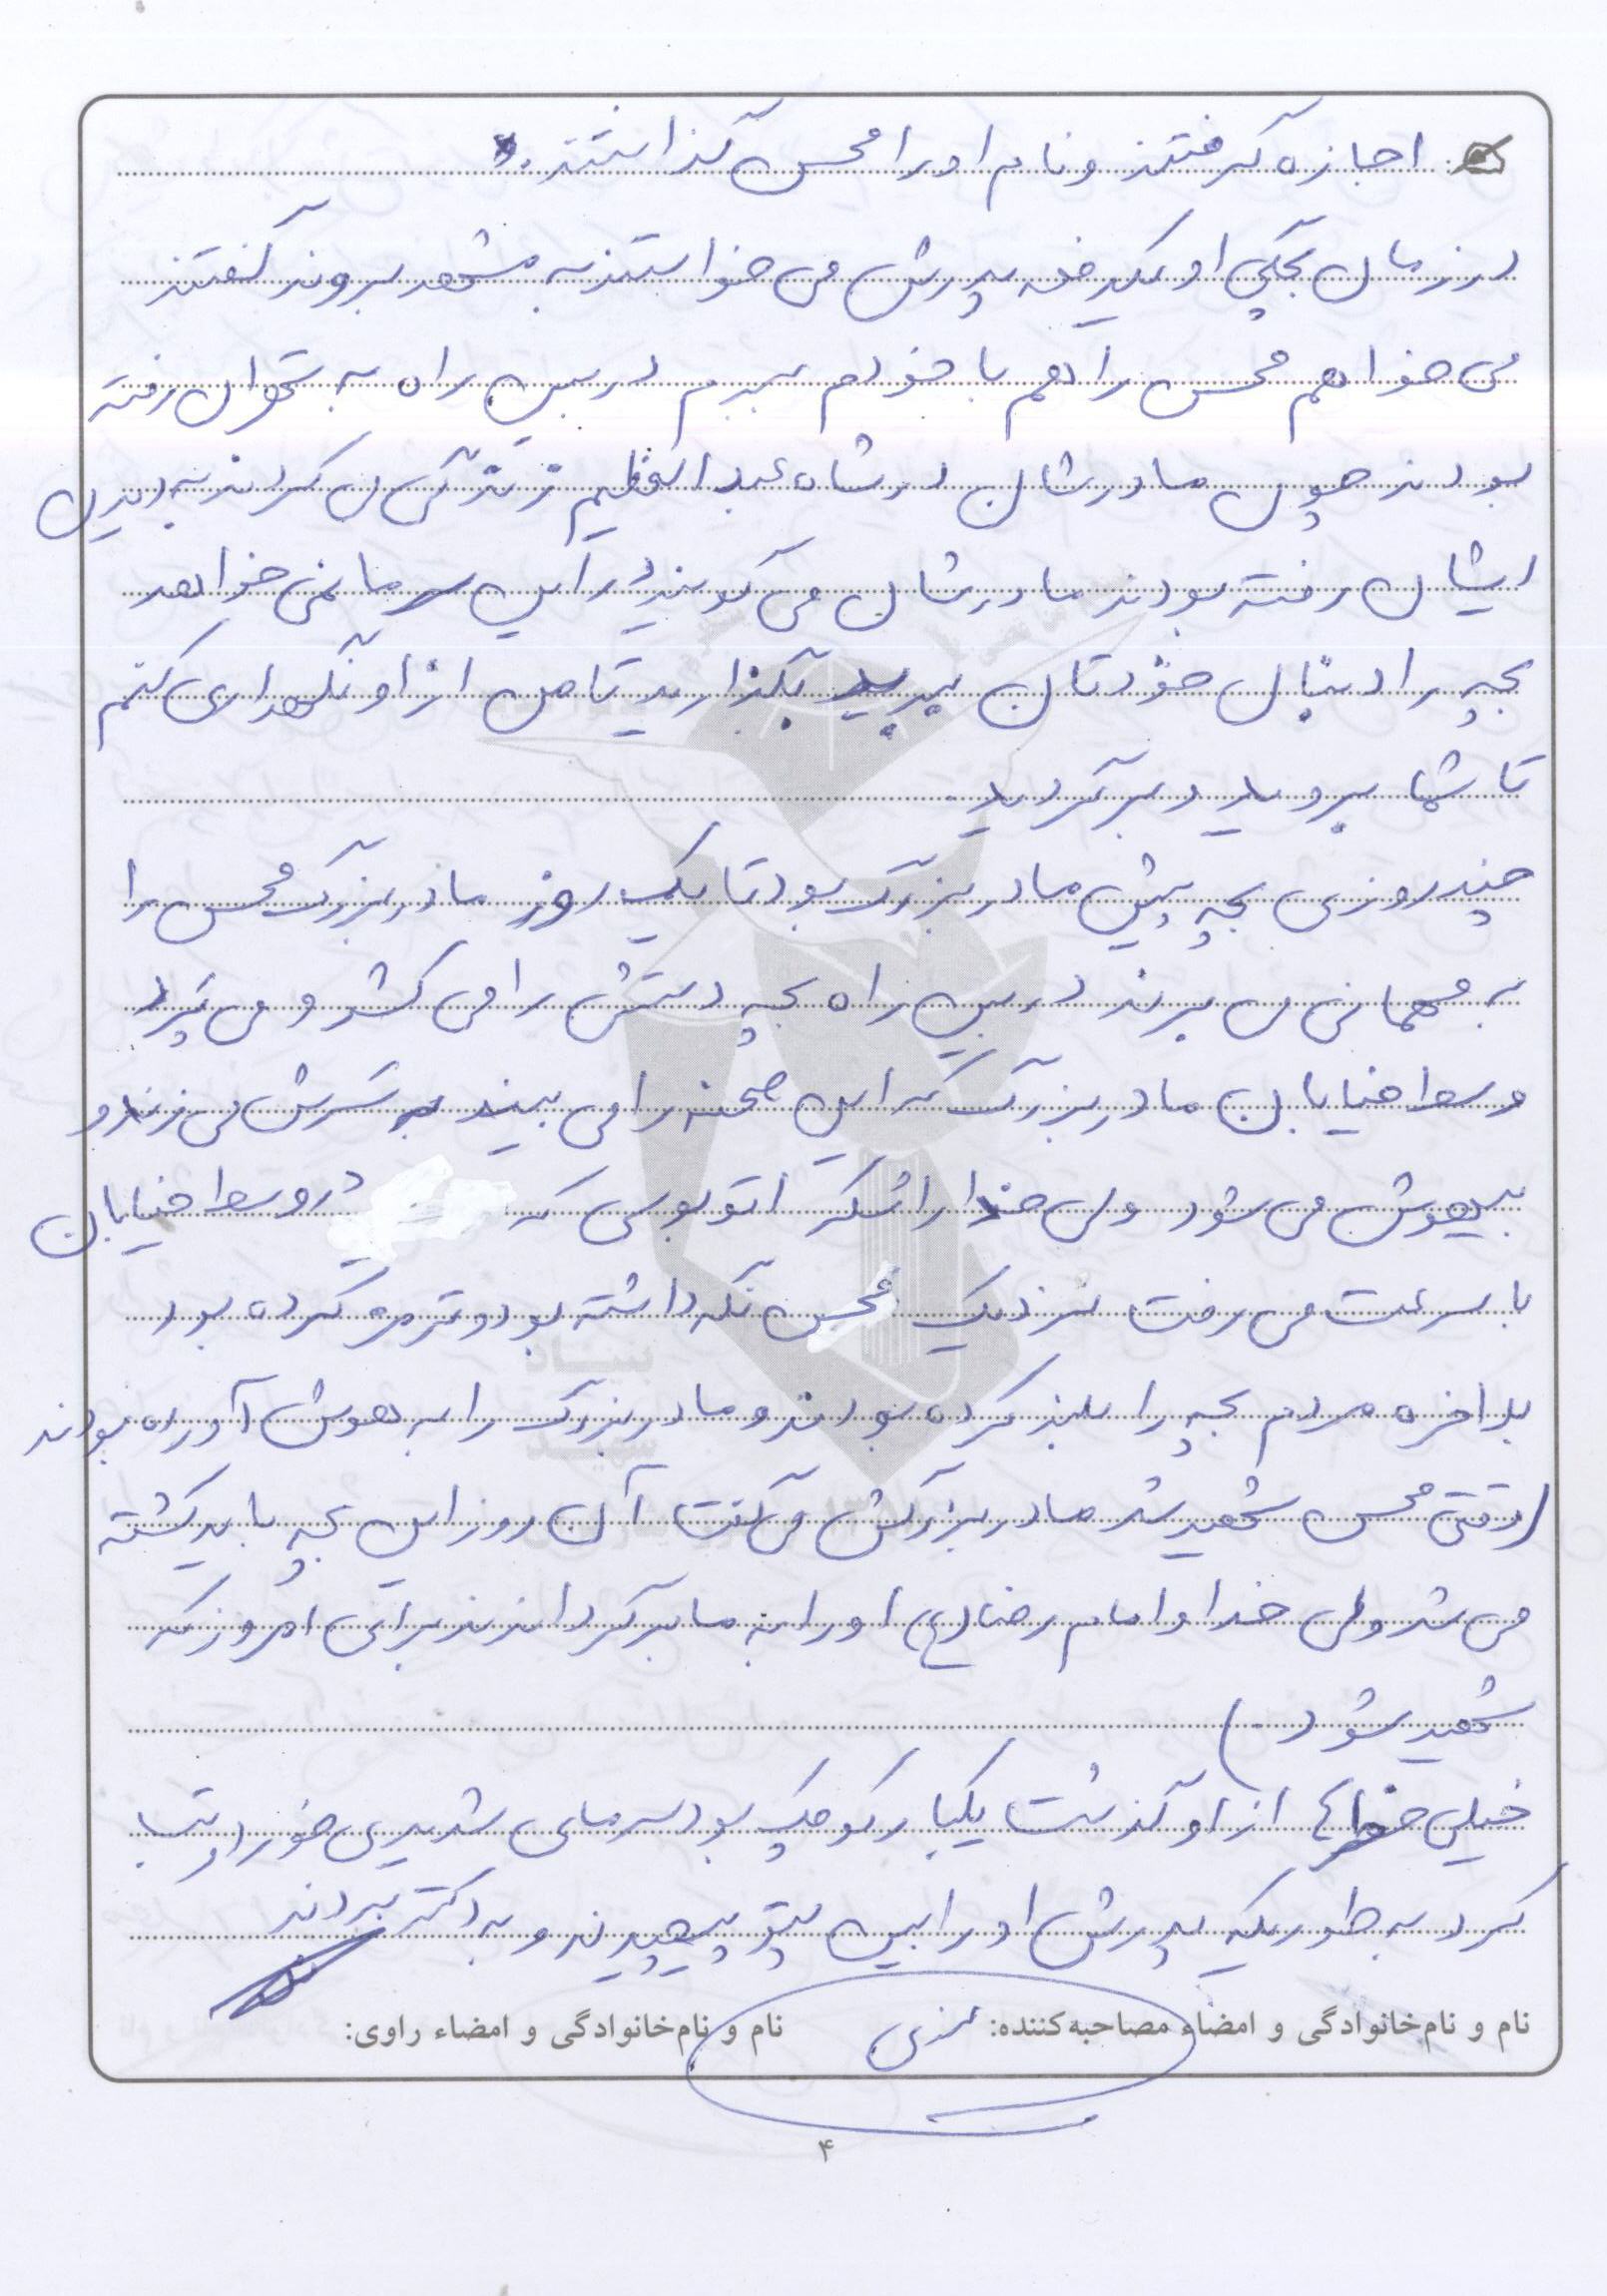 اجازه گرفتند و نام او را محسن گذاشتند.
در زمان بچگی او یکدفعه پدرش می خواستند به مشهد بروند گفتند
می خواهم محسن را هم با خودم ببرم در بین راه به تهران رفته
بودند چون مادرشان در شاه عبدالعظیم زندگی می کردند به دیدن
ایشان رفته بودند مادرشان می گویند در این سرما نمی خواهد
بچه را دنبال خودتان ببرید بگذارید تا من از او نگهداری کنم
تا شما بروید و برگردید.
چند روزی بچه پیش مادربزرگ بود تا یک روز مادربزرگ محسن را
به مهمانی می برند در بین راه بچه دستش را می کشد و می پرد
وسط خیابان مادربزرگ که این صحنه را می بیند به سرش می زند و
بیهوش می شود ولی خدا را شکر اتوبوسی که در وسط خیابان
با سرعت می رفت نزدیک محسن نگه داشته بود و ترمز کرده بود
بلاخره مردم بچه را بلند کرده بودند و مادربزرگ را به هوش آورده بودند
(وقتی محسن شهید شد مادربزرگش می گفت آن روز این بچه باید کشته
می شد ولی خدا و امام رضا (ع) او را به ما برگرداندند برای امروز که
شهید شود.)
خیلی خطرها از او گذشت یکبار کوچک بود سرمای شدیدی خورد و تب
کرد به طوریکه پدرش او را بین پتو پیچیدند و به دکتر بردند
نام و نام‌خانوادگی و امضاء مصاحبه‌کننده: نام و نام‌خانوادگی و امضاء راوی:
۴